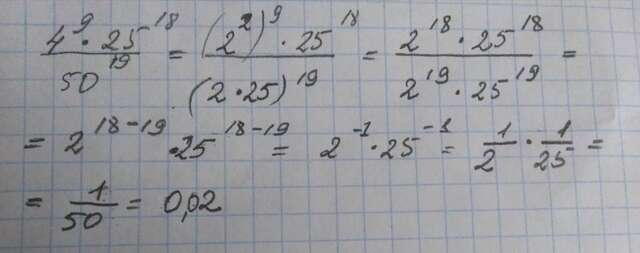 4⁹·25¹⁸/50¹⁹ = (2²)⁹·25¹⁸/(2·25)¹⁹ = 2¹⁸·25¹⁸/2¹⁹·25¹⁹ =
= 2¹⁸⁻¹⁹·25¹⁸⁻¹⁹ = 2⁻¹·25⁻¹ = 1/2·1/25 =
= 1/50 = 0,02